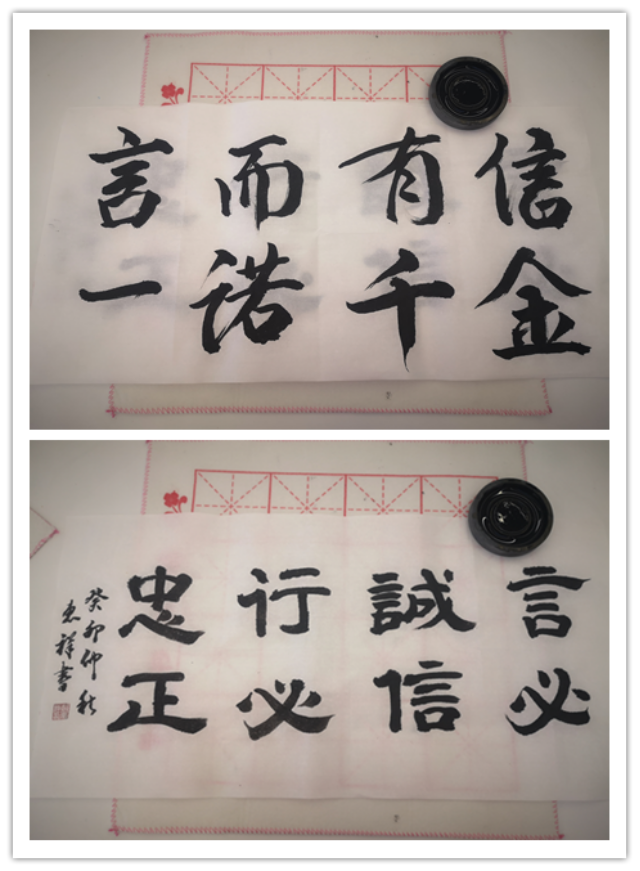 言而有信
一诺千金
言必
誠信
行必
忠正
癸卯仲秋
祥書